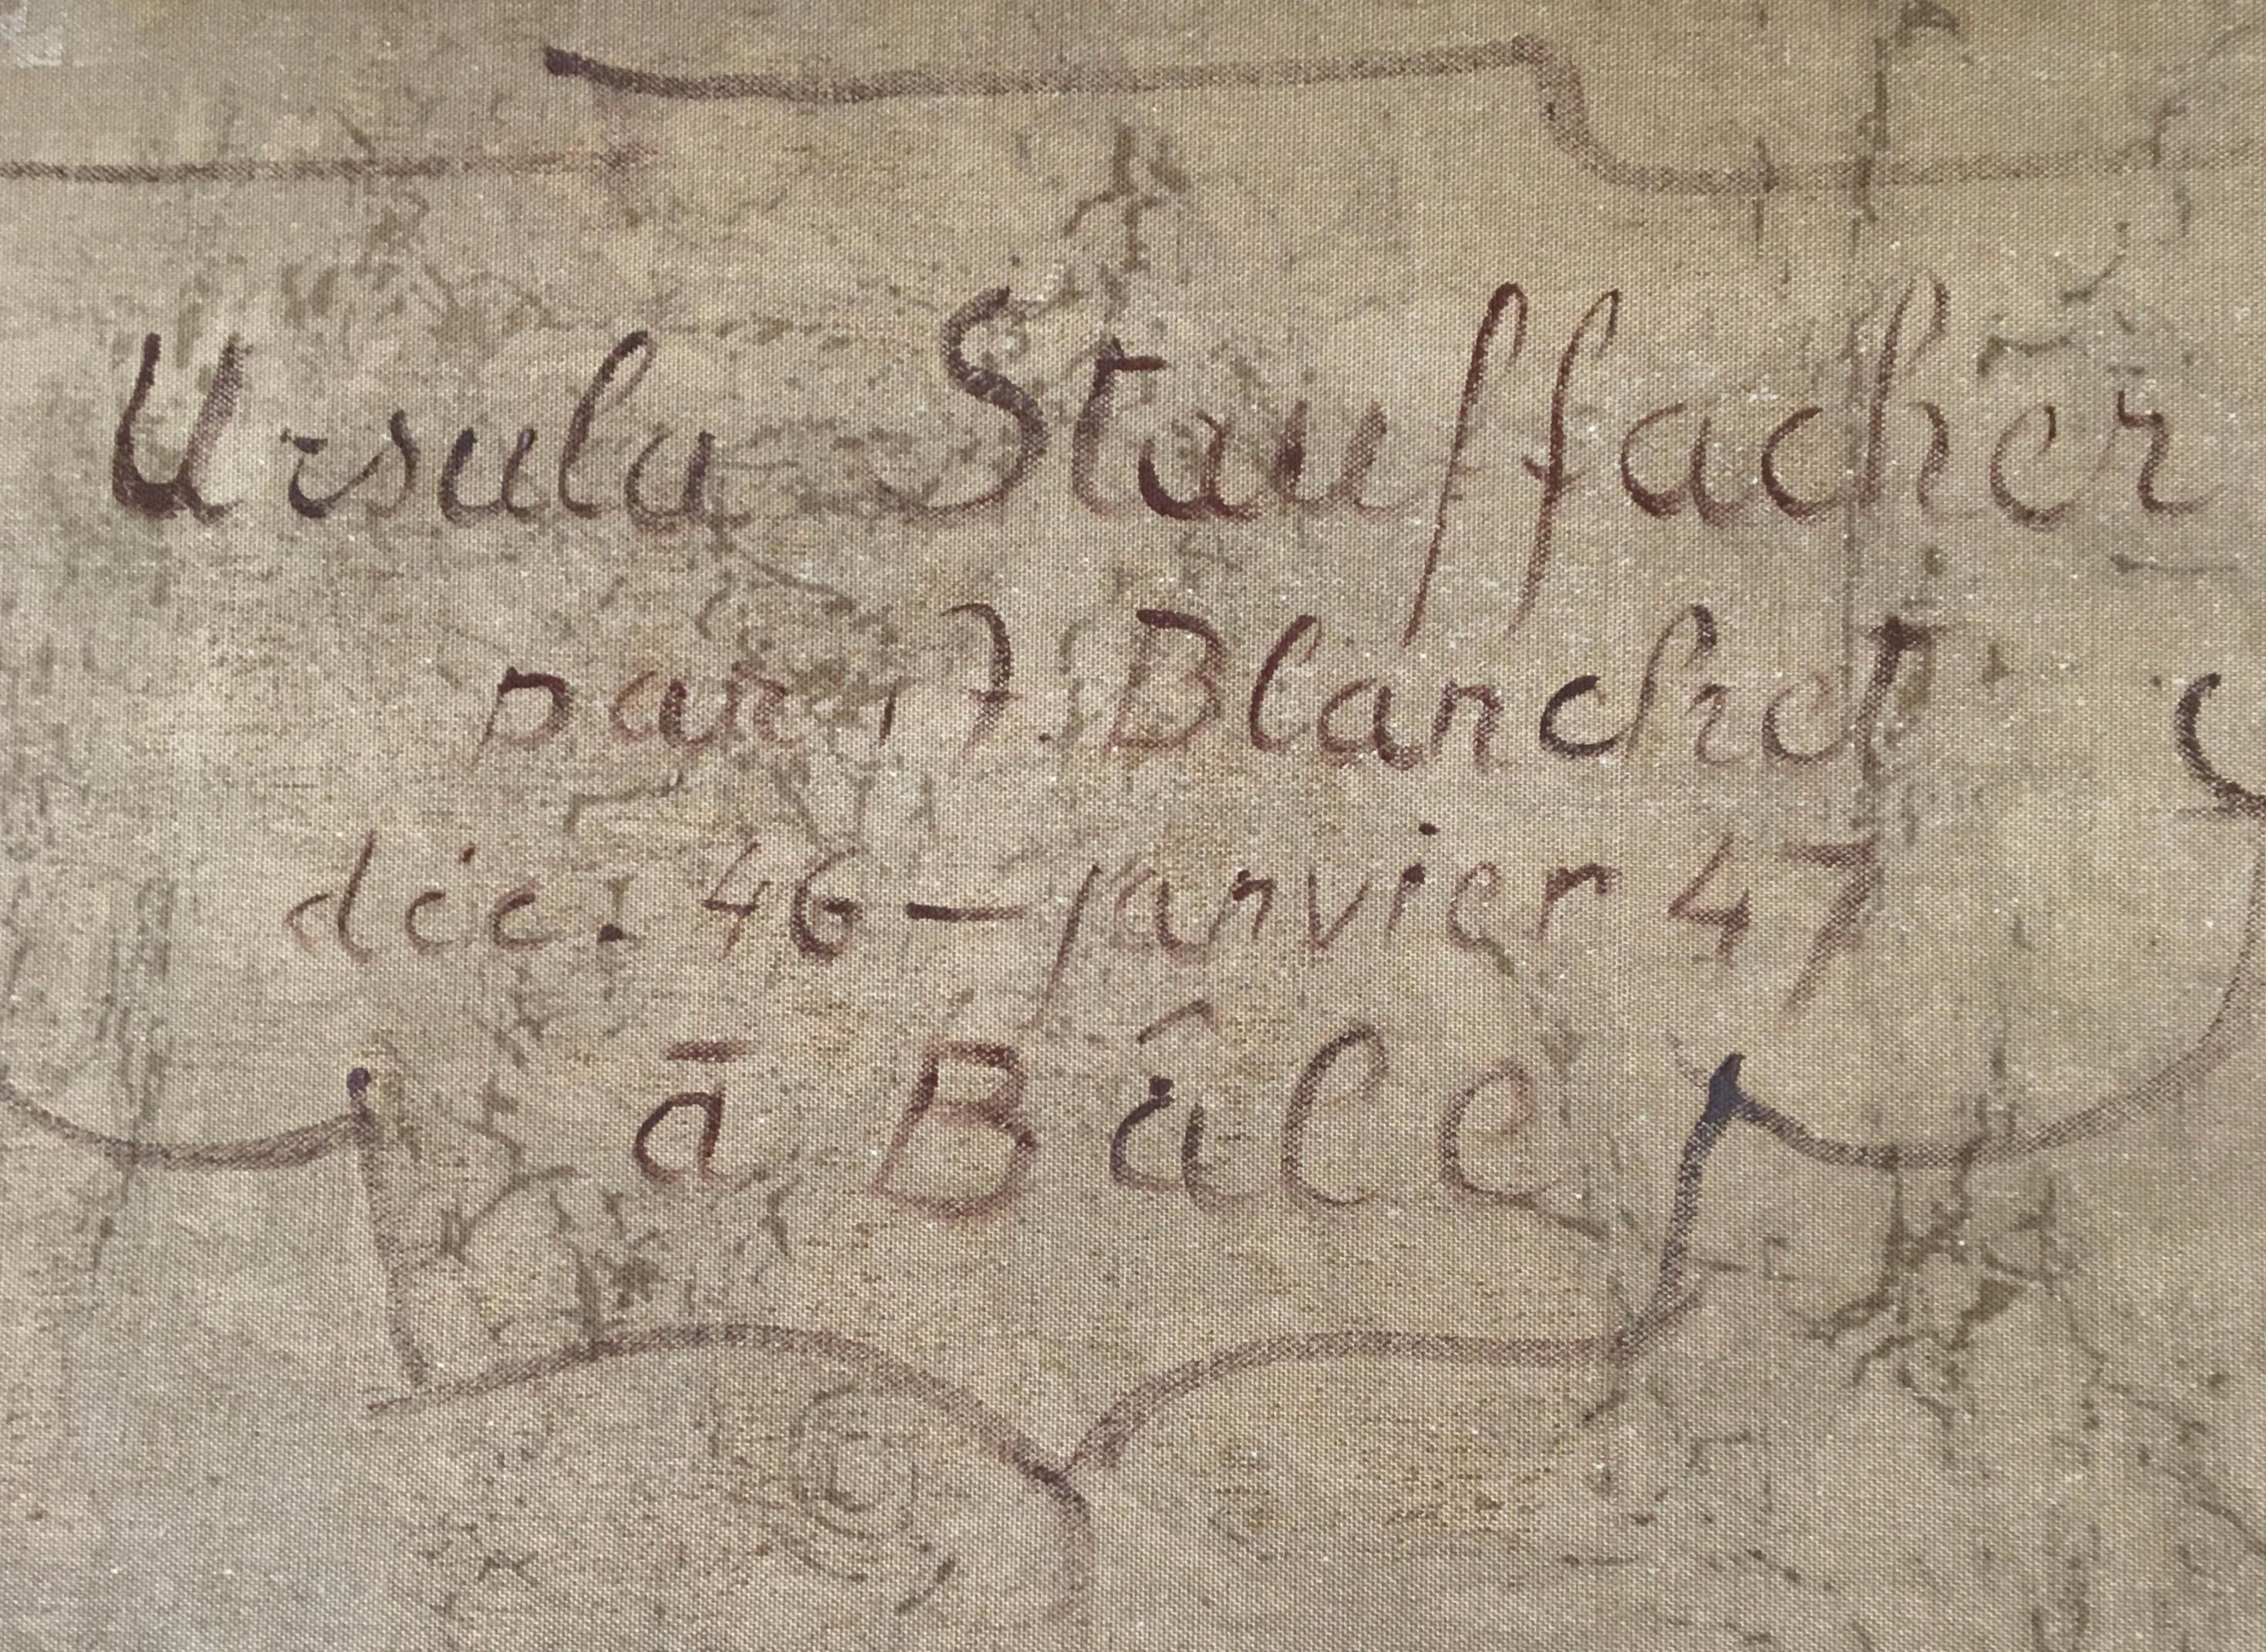 Ursula Stauffacher
par A. Blanchet
déc. 46 — janvier 47
à Bâle